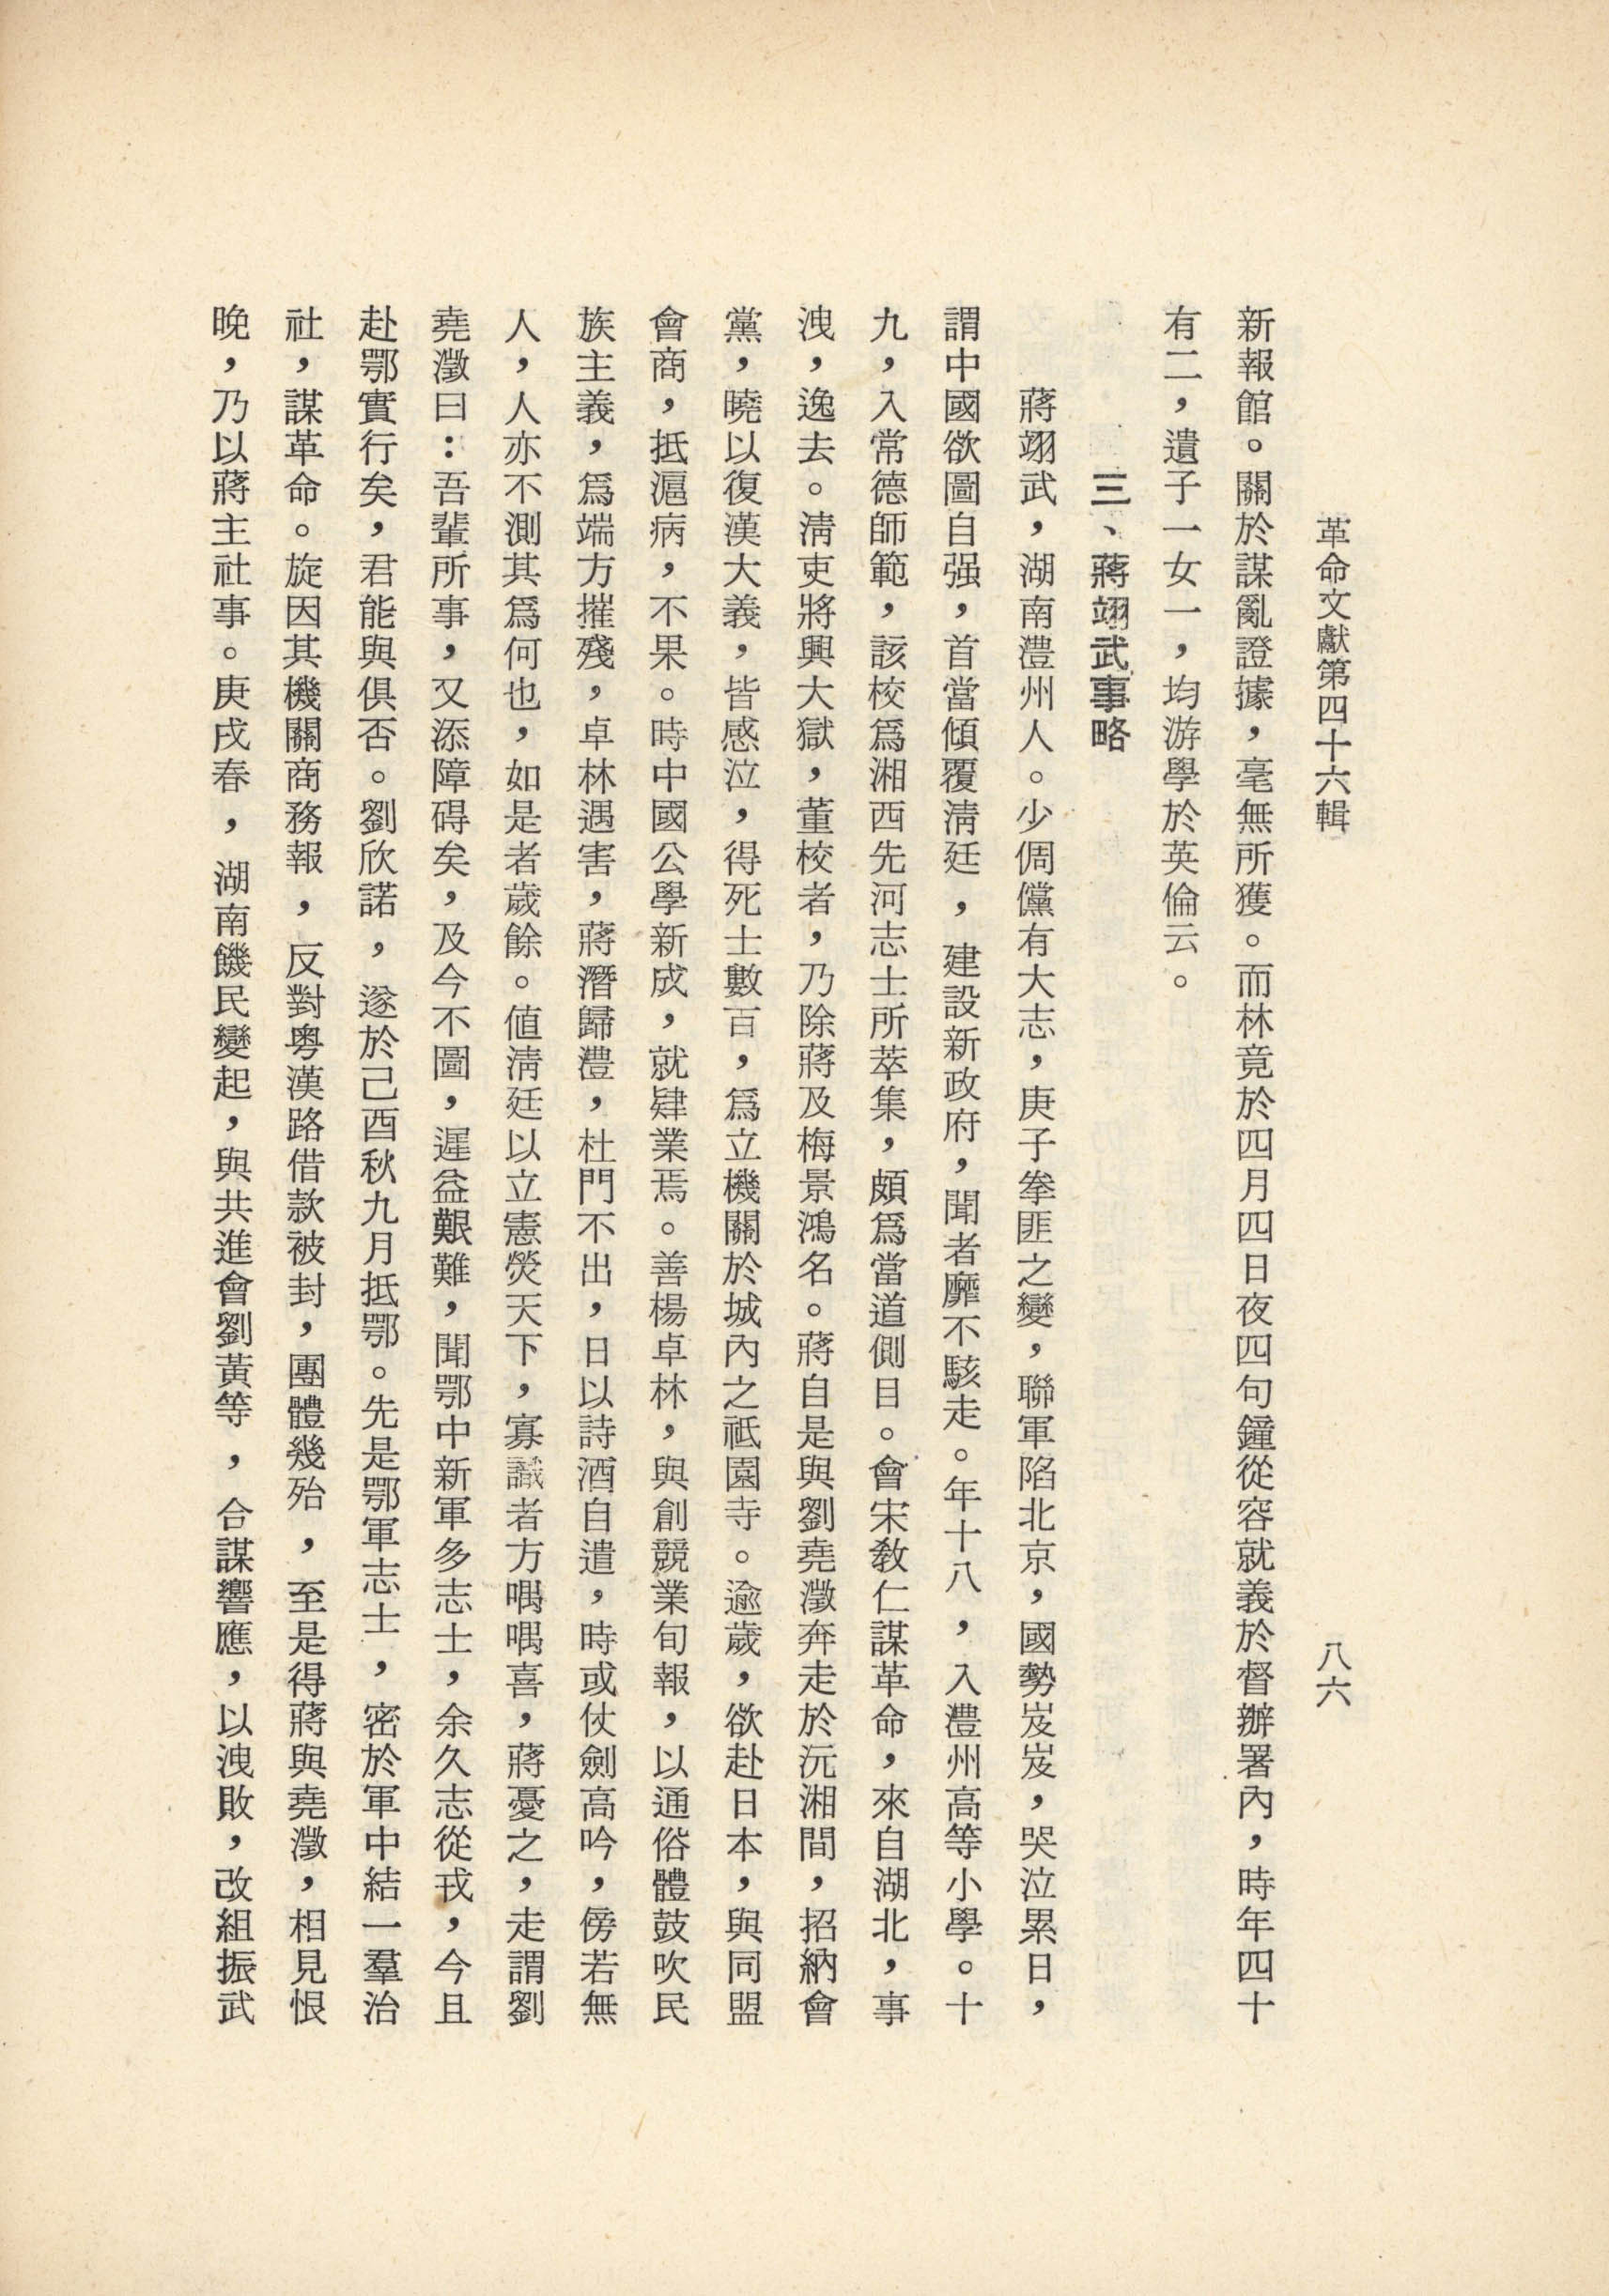 革命文獻第四十六輯
八六
新報館。關於謀亂證據，毫無所獲。而林竟於四月四日夜四句鐘從容就義於督辦署內，時年四十
有二，遺子一女一，均游學於英倫云。
三、蔣翊武事略
蔣翊武，湖南澧州人。少倜儻有大志，庚子拳匪之變，聯軍陷北京，國勢岌岌，哭泣累日，
謂中國欲圖自强，首當傾覆淸廷，建設新政府，聞者靡不駭走。年十八，入澧州高等小學。十
九，入常德師範，該校爲湘西先河志士所萃集，頗爲當道側目。會宋敎仁謀革命，來自湖北，事
洩，逸去。淸吏將興大獄，董校者，乃除蔣及梅景鴻名。蔣自是與劉堯澂奔走於沅湘間，招納會
黨，曉以復漢大義，皆感泣，得死士數百，爲立機關於城內之祗園寺。逾歲，欲赴日本，與同盟
會商，抵滬病，不果。時中國公學新成，就肄業焉。善楊卓林，與創競業旬報，以通俗體鼓吹民
族主義，爲端方摧殘，卓林遇害，蔣潛歸澧，杜門不出，日以詩酒自遣，時或仗劍高吟，傍若無
人，人亦不測其爲何也，如是者歲餘。値淸廷以立憲熒天下，寡識者方喁喁喜，蔣憂之，走謂劉
堯澂曰：吾輩所事，又添障碍矣，及今不圖，遲益艱難，聞鄂中新軍多志士，余久志從戎，今且
赴鄂實行矣，君能與俱否。劉欣諾，遂於己酉秋九月抵鄂。先是鄂軍志士，密於軍中結一羣治
社，謀革命。旋因其機關商務報，反對粤漢路借款被封，團體幾殆，至是得蔣與堯澂，相見恨
晚，乃以蔣主社事。庚戌春，湖南饑民變起，與共進會劉黃等，合謀響應，以洩敗，改組振武